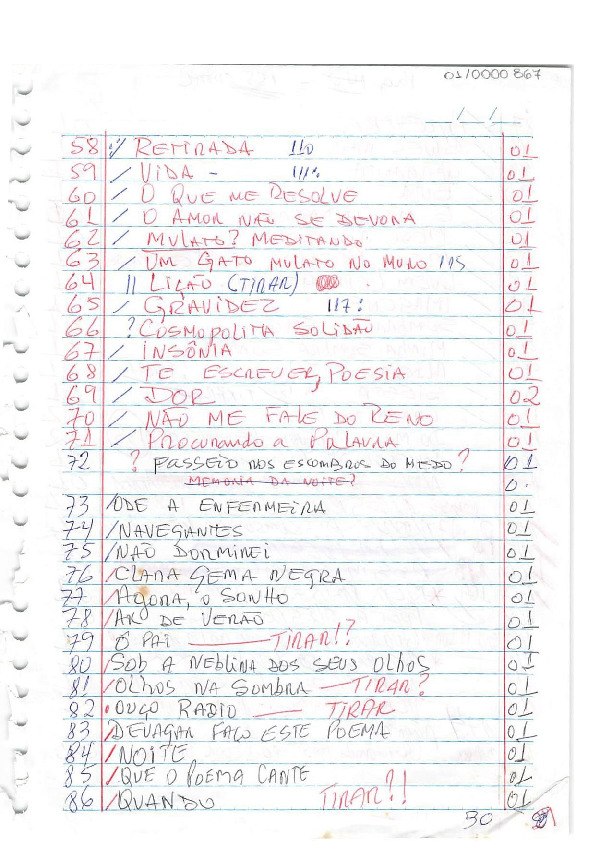 01/0000867
__/__/__
58 Retirada 110 01
59 / Vida - 111% 01
60 / O Que me Resolve 01
61 / O Amor não se Devora 01
62 / Mulato? Meditando 01
63 / Um Gato Mulato no Muro 115 01
64 || Lição (Tirar) 01
65 / Gravidez 117: 01
66 ? Cosmopolita Solidão 01
67 / Insônia 01
68 / Te Escrever, Poesia 01
69 / Dor 02
70 / Não me Fale do Reno 01
71 / Procurando a Palavra 01
72 ? Passeio nos Escombros do Medo? 01
Memoria da Noite? 0.
73 / Ode a Enfermeira 01
74 / Navegantes 01
75 / Não Dormirei 01
76 / Clara Gema Negra 01
77 / Agora, o Sonho 01
78 / Ar de Verão 01
79 Ô Pai — Tirar!? 01
80 / Sob a Neblina dos Seus Olhos 01
81 / Olhos na Sombra — Tirar? 01
82 • Ouço Radio — Tirar 01
83 / Devagar Faço este Poema 01
84 / Noite 01
85 / Que o Poema Cante 01
86 / Quando Tirar?! 01
30